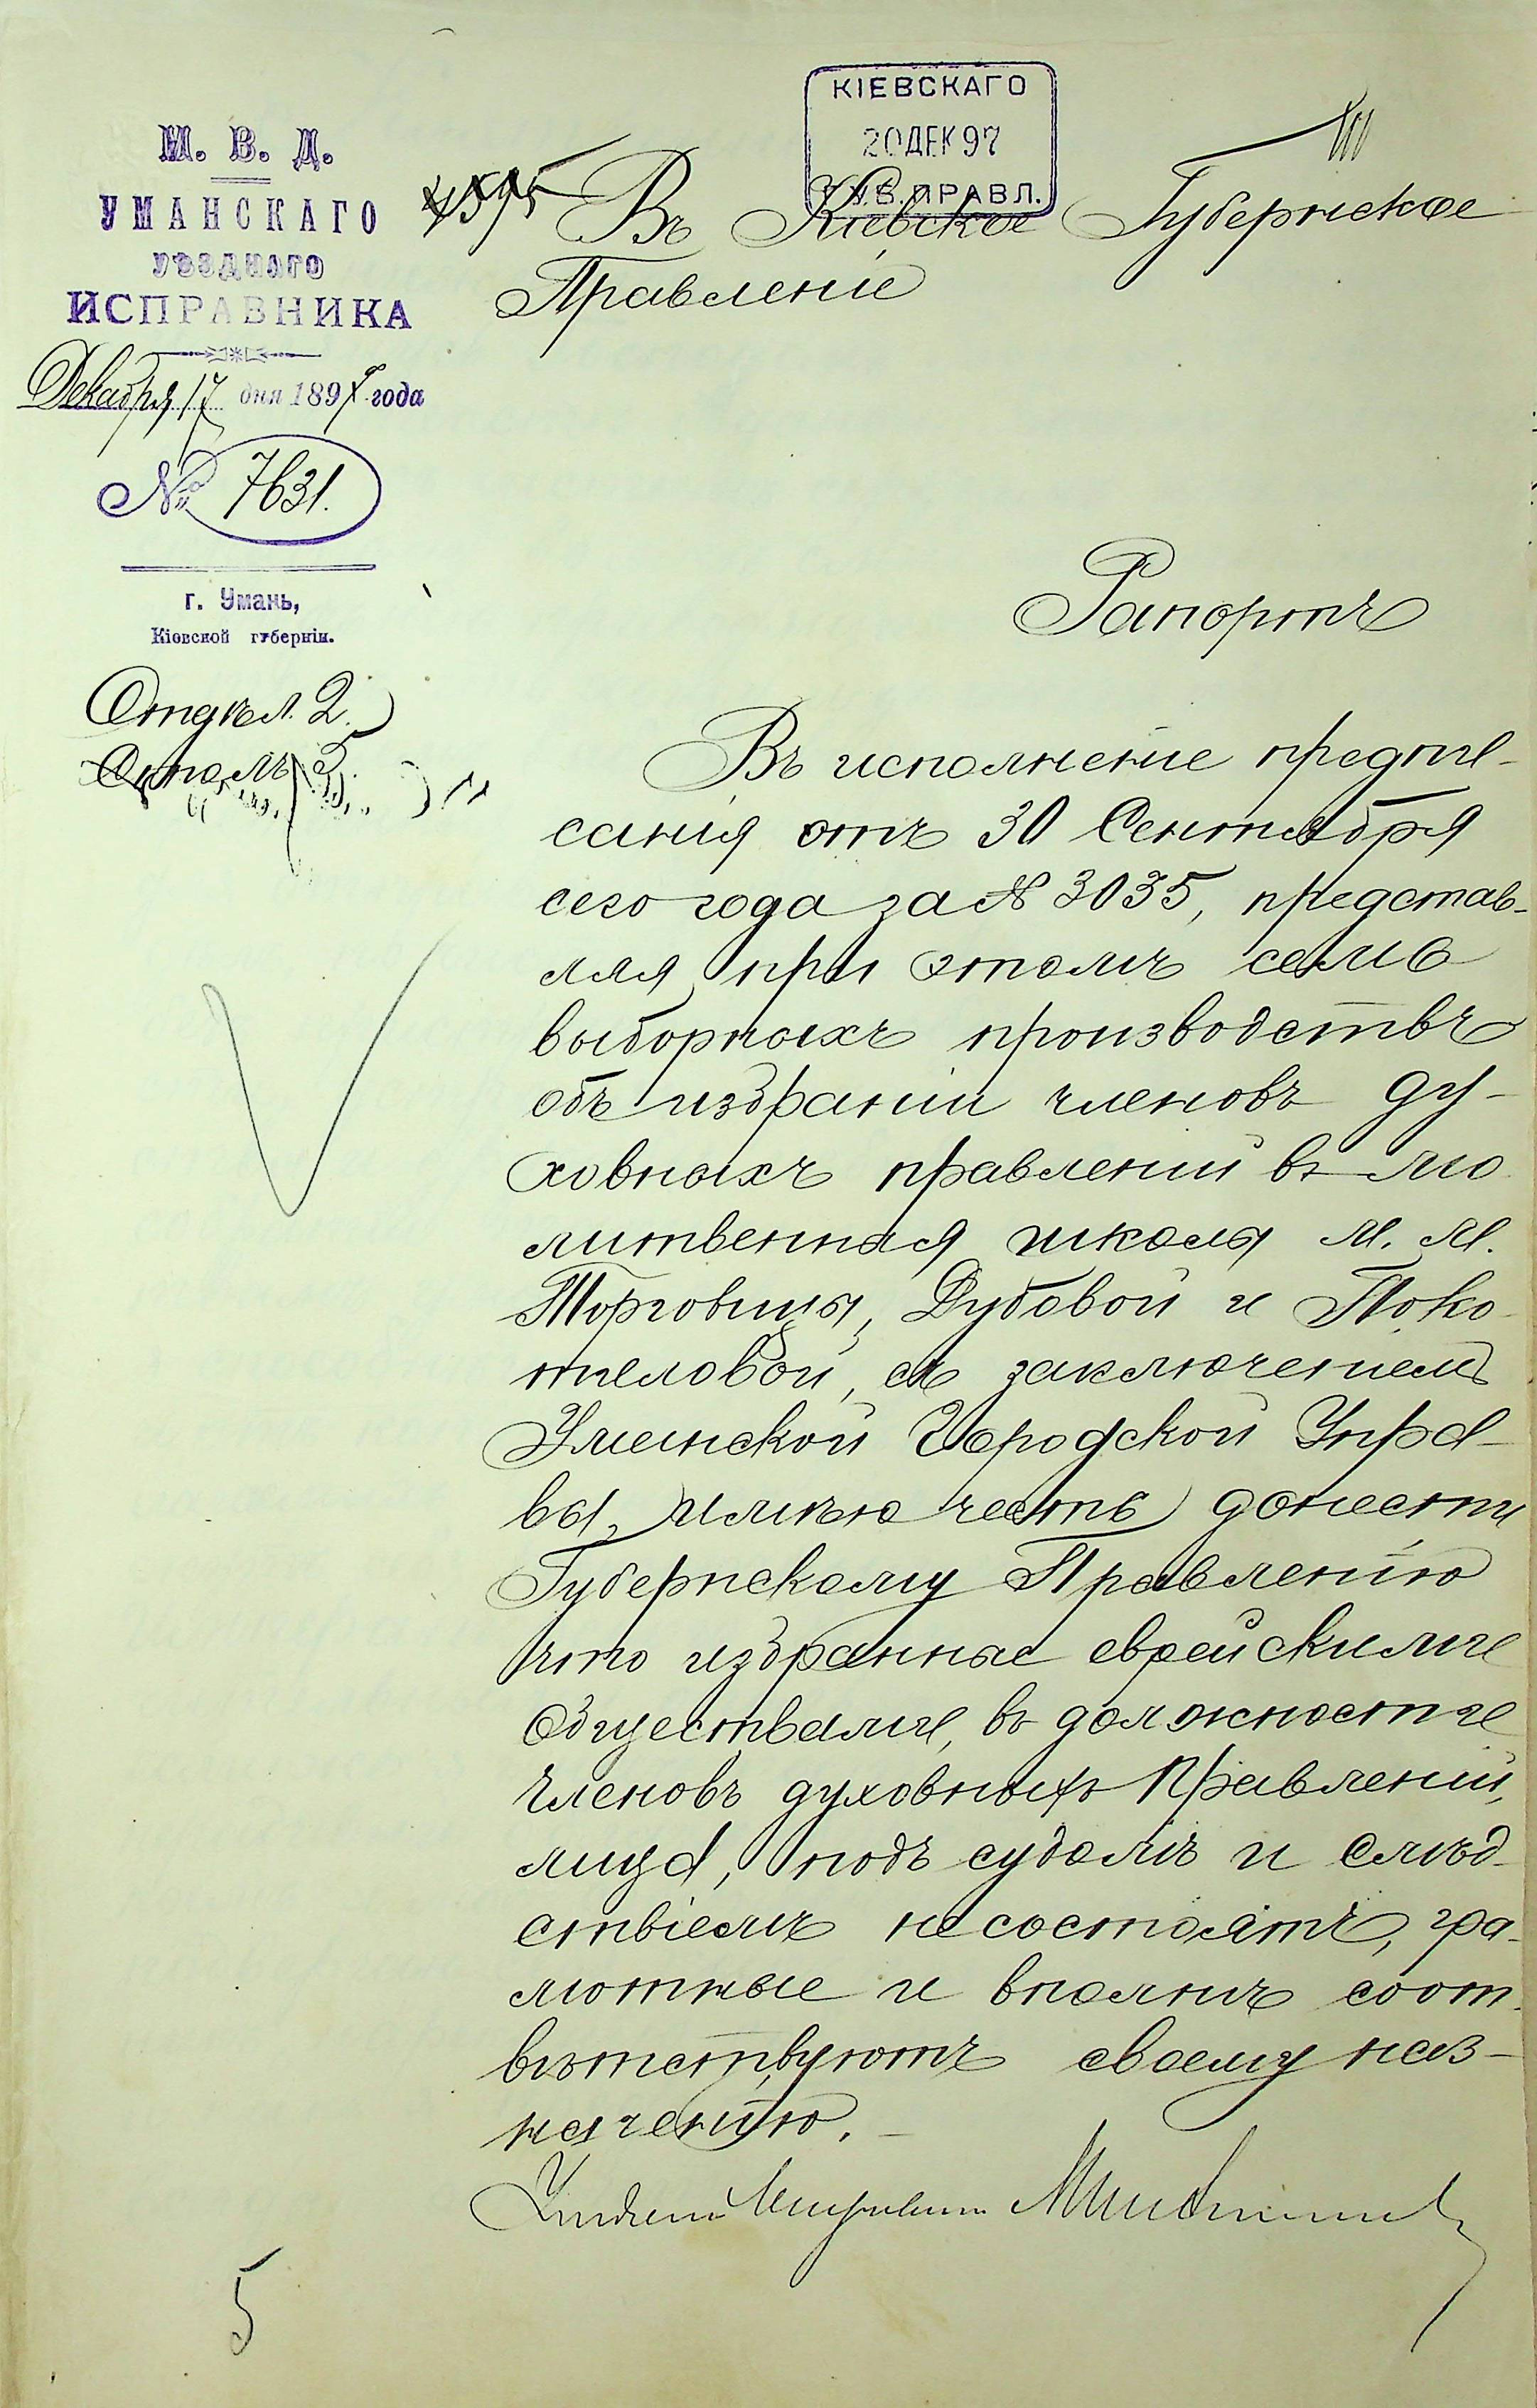 КІЕВСКАГО
20 ДЕК 97
ГУБ. ПРАВЛ.
М. В. Д.
УМАНСКАГО
УѢЗДНАГО
ИСПРАВНИКА
Декабря 17 дня 1897 года
№ 7631.
г. Умань,
Кіевской губерніи.
Отдѣл. 2.
Столъ 5.
Въ Кіевское Губернское
Правленіе
Рапортъ
Въ исполненіе предпи-
санія отъ 30 Сентября
сего года за № 3035, представ-
ляя при этомъ семь
выборныхъ производствъ
объ избраніи членовъ ду-
ховныхъ правленій въ мо
литвенныя школы м. м.
Торговицы, Дубовой и Поко
тиловой, съ заключеніемъ
Уманской Городской Упра-
вы, имѣю честь донести
Губернскому Правленію
что избранные еврейскими
обществами, въ должности
членовъ духовныхъ Правленій,
лица, подъ судомъ и слѣд-
ствіемъ не состоятъ, гра-
мотные и вполнѣ соот-
вѣтствуютъ своему наз-
наченію. –
Уѣздный Исправникъ
5